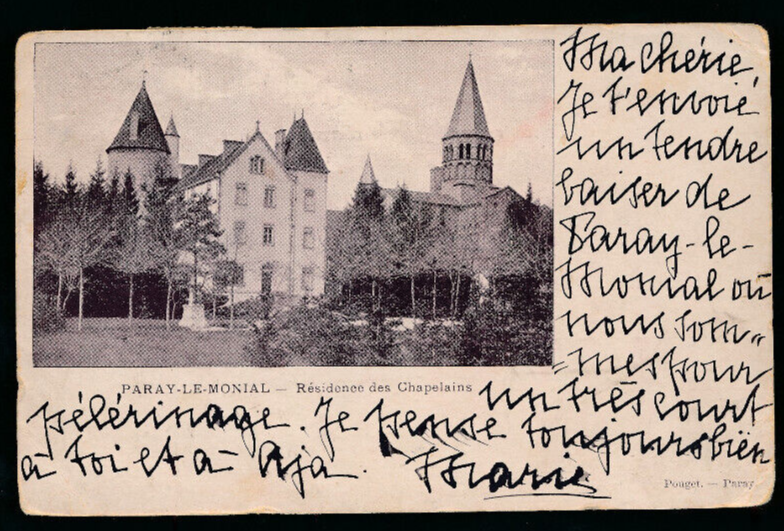 Ma chérie,
Je t'envoie
un tendre
baiser de
Paray-le-
Monial où
nous som-
mes pour
un très court
pélérinage. Je pense toujours bien
à toi et à Aja. Marie
PARAY-LE-MONIAL — Résidence des Chapelains
Pouget. — Paray